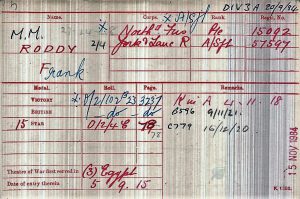 DIV 3 A 29/9/84
Name. Corps. Rank. Regtl. No.
M.M. North'd Fus Pte 15092
RODDY 2/4 York & Lanc R A/Sjt 57597
Frank
Medal. Roll. Page. Remarks.
VICTORY O/2/102 B 23 3237 K in A 4.11.18
BRITISH -do- -do- B596 9/11/21.
15 STAR O/2/4 B 78 C779 16/12/20
Theatre of War first served in (3) Egypt
Date of entry therein 5.9.15
K. 1380.
15 NOV 1984